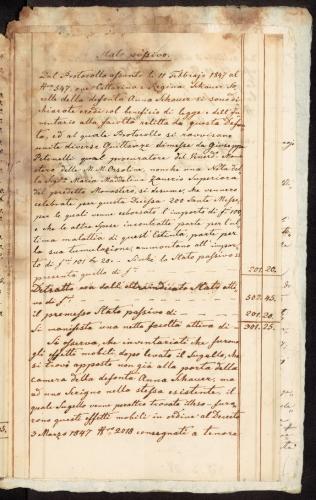 Stato passivo.
Dal Protocollo assunto li 11 Febbrajo 1847 al
N.º 547, ove Catterina e Regina Schauer So-
relle della defonta Anna Schauer si sono di-
chiarate eredi col beneficio di legge e dell' In-
ventario alla facoltà relitta da questa defon-
ta, ed al quale Protocollo si ravvisano
unite diverse Quittanze dimesse da Giuseppe
Petrinelli qual procuratore del Vener. Mona-
stero delle M. M. Orsoline, nonché una Nota del-
la Sig.ra Maria Maddalena Superiora
del predetto Monastero, si desume, che vennero
celebrate per questa Defonta 200 Sante Messe,
per le quali venne esborsato l' importo di f.ni 100,
e che le altre Spese incontrate parte per l' ul-
tima malattia di questi Defonta, parte per
la sua tumulazione, ammontano all' impor-
to di f.ni 101 & 20. Sicché lo Stato passivo si
presenta quello di f.ni 201. 20.
Detratto ora dall' Stato atti-
vo di f.ni 502. 45.
il premesso Stato passivo di 201. 20.
Si manifesta una netta facoltà attiva di 301. 25.
Si osserva, che inventariati che furono
gli effetti mobili, dopo levato il Sugello, che
si trovò apposto non già alla porta della
camera della defonta Anna Schauer, ma
ad uno Scrigno nella stessa esistente, il
quale Sugello venne peraltro trovato illeso, furo-
rono questi effetti mobili in ordine al Decreto
3 Marzo 1847 N.º 2018 consegnati a tenore